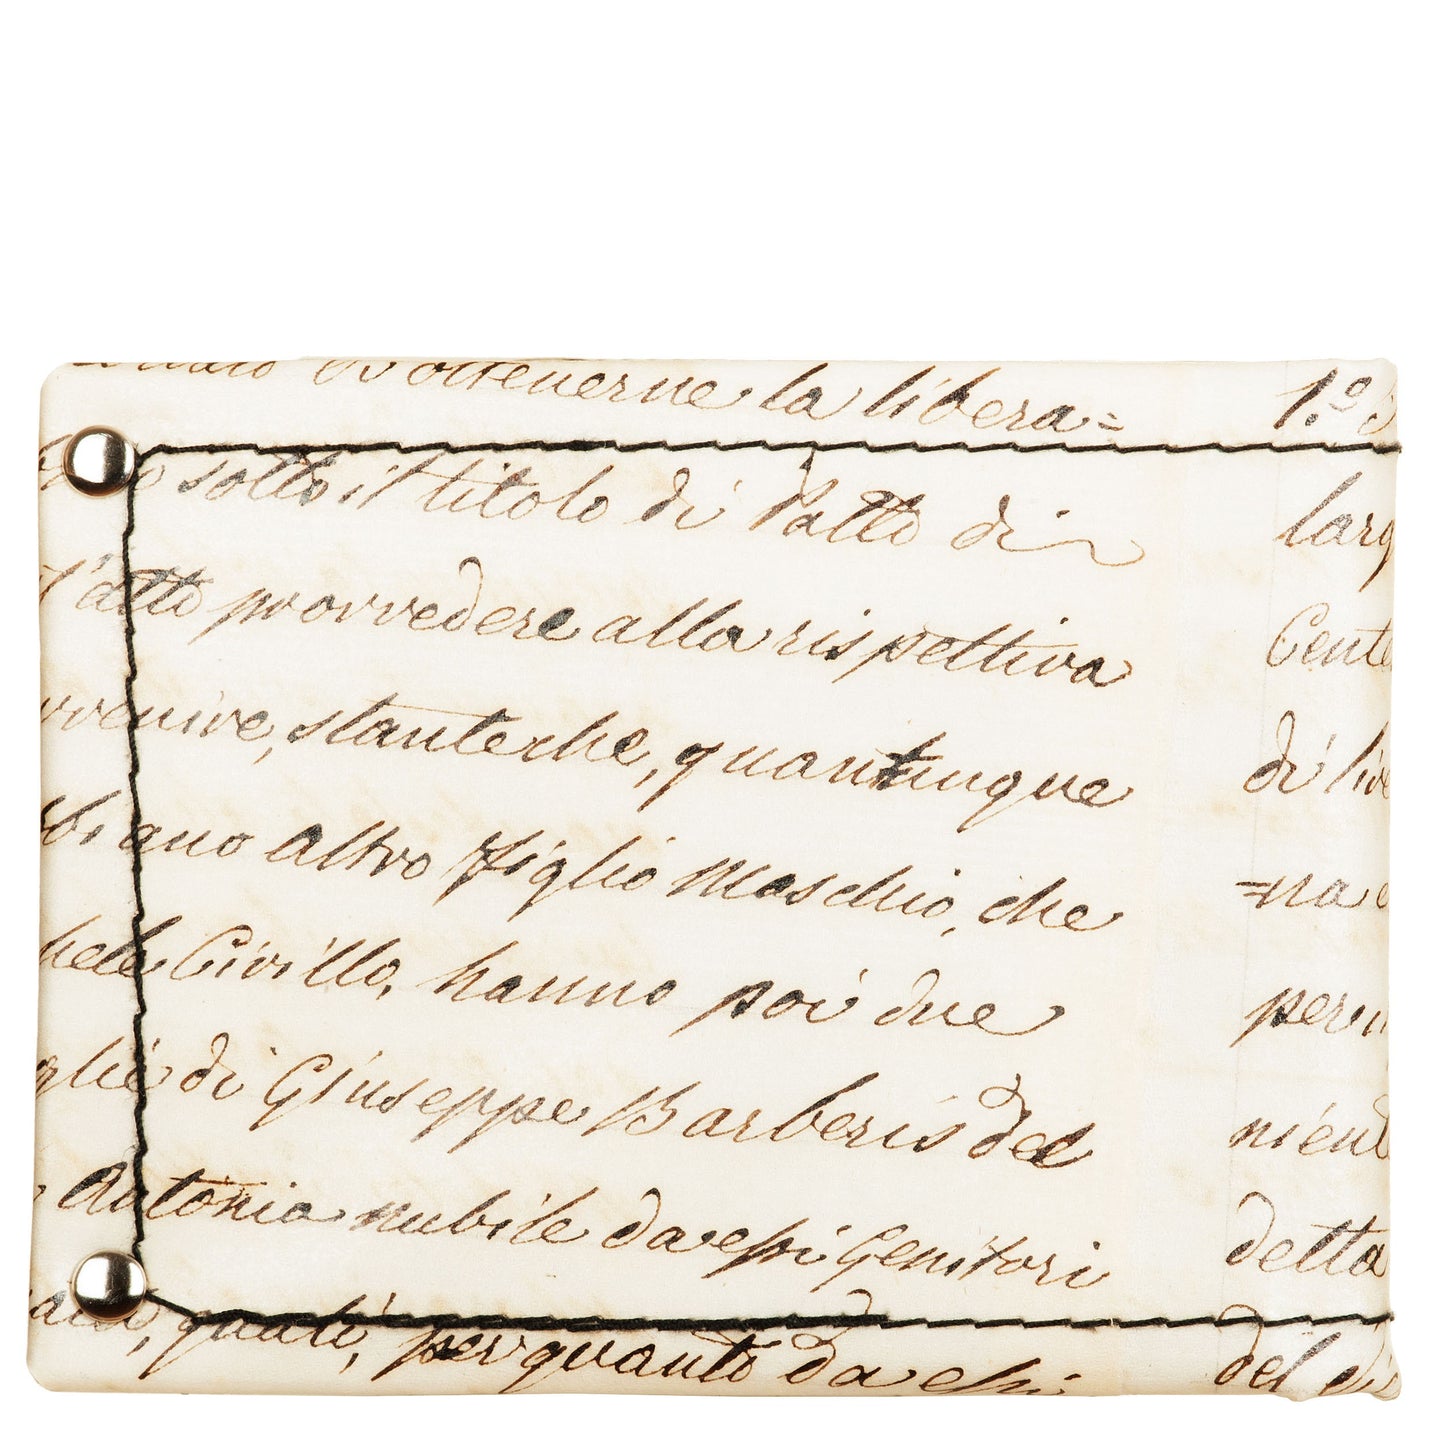 ottenerne la libera=
sotto il titolo di Patto di
l'atto provvedere alla rispettiva
vvenire, stanteche, quantunque
bbiano altro Figlio Maschio, che
Civillo, hanno poi due
glie di Giuseppe Barberis del
Antonia nubile da essi Genitori
quali, per quanto da essi
1.º
larg
Cente
di live
=na
per
nient
detta
del di